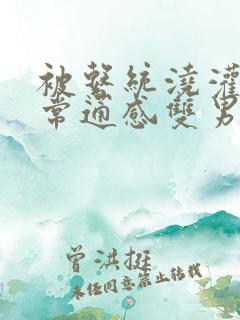 被繫統澆灌
常通感雙男
曾洪挺
未经同意禁止转载